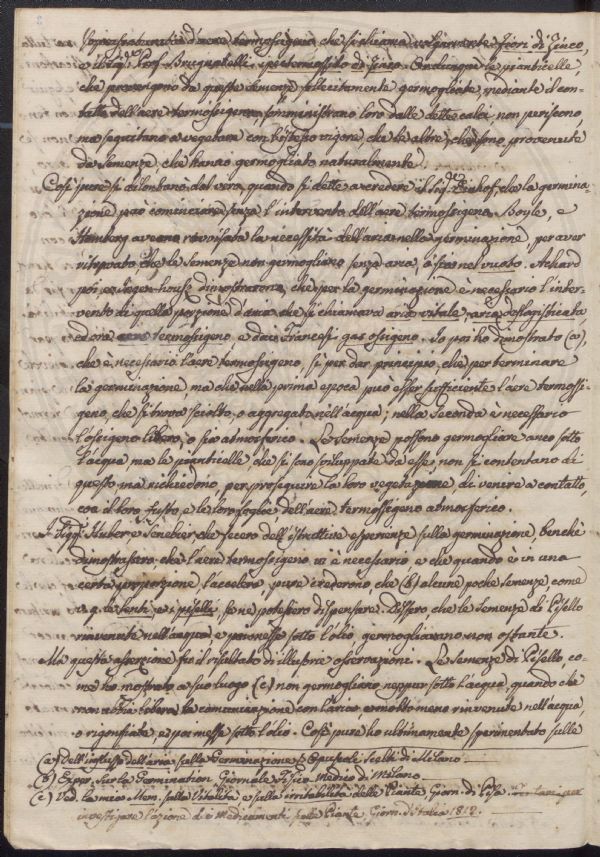 d'aere termossigeno che si chiama volgarmente Fiori di Zinco,
Brugnatelli termossido di Zinco. le pianticelle,
che provengono da queste semenze felicitamente germogliate, mediante il con-
tatto dell'aere termossigeno, somministrano loro dalle dette calci, non periscono,
ma seguitano a vegetare con l'istesso vigore, che le altre, che sono provenute
da Semenze, che hanno germogliato naturalmente.
Così pure si dilontano dal vero, quando si dette a credere il Sig. che la germina-
zione può cominciare senza l'intervento dell'aere termossigeno. Boyle, e
Homberg aveano ravvisata la necessità dell'aria nella germinazione, per aver
ritrovato, che le Semenze non germogliano senza aria, ossia nel vuoto. Achard
poi, e Ingen-housz dimostrarono, che per la germinazione è necessario l'inter-
vento di quella porzione d'aria che si chiamava aria vitale, aria deflogisticata
ed ora termossigeno, e dai Francesi gas ossigeno. Io poi ho dimostrato (a),
che è necessario l'aere termossigeno, sì per dar principio, che per terminare
la germinazione, ma che nella prima epoca può esser sufficiente l'aere termossi-
geno, che si trova sciolto, o aggregato nell'acqua; nella Seconda è necessario
l'ossigeno libero, o sia atmosferico. Le Semenze possono germogliare anco sotto
l'acqua ma le pianticelle che si sono sviluppate da esse, non si contentano di
questo ma richiedono, per proseguire la loro vegetazione, di venire a contatto,
col loro fusto, e le loro foglie dell'aere termossigeno atmosferico.
I Sigg. Huber e Senebier, che fecero dell'istruttive esperienze sulla germinazione, benchè
dimostrassero che l'aere termossigeno vi è necessario e che quando è in una
certa proporzione l'accelera, pure crederono, che (b) alcune poche semenze come
v. g. le lenti, e i piselli, se ne potessero dispensare. Dissero, che le Semenze di Pisello
rinvenute nell'acqua e poi messe sotto l'olio germogliavano non ostante.
Ma questa asserzione fu il risultato di illusorie osservazioni. Le Semenze di Pisello, co-
me ho mostrato a suo luogo (c) non germogliano neppur sotto l'acqua, quando che
non vi sia libera la comunicazione con l'aria, e molto meno rinvenute nell'acqua
o rigonfiate, e poi messe sotto l'olio. Così pure ho ultimamente sperimentato sulle
(a) Dell'influsso dell'aria sulla Germinazione. Opuscoli Scelti di Milano.
(b) Exper. sur la Germination Giornale Fisico Medico di Milano.
(c) Ved. la mia Mem. sulla Vitalità e sulla irritabilità delle Piante, Giorn. di Pisa. per
investigare l'azione dei Medicamenti sulle Piante. Giorn. d'Italia 1812.